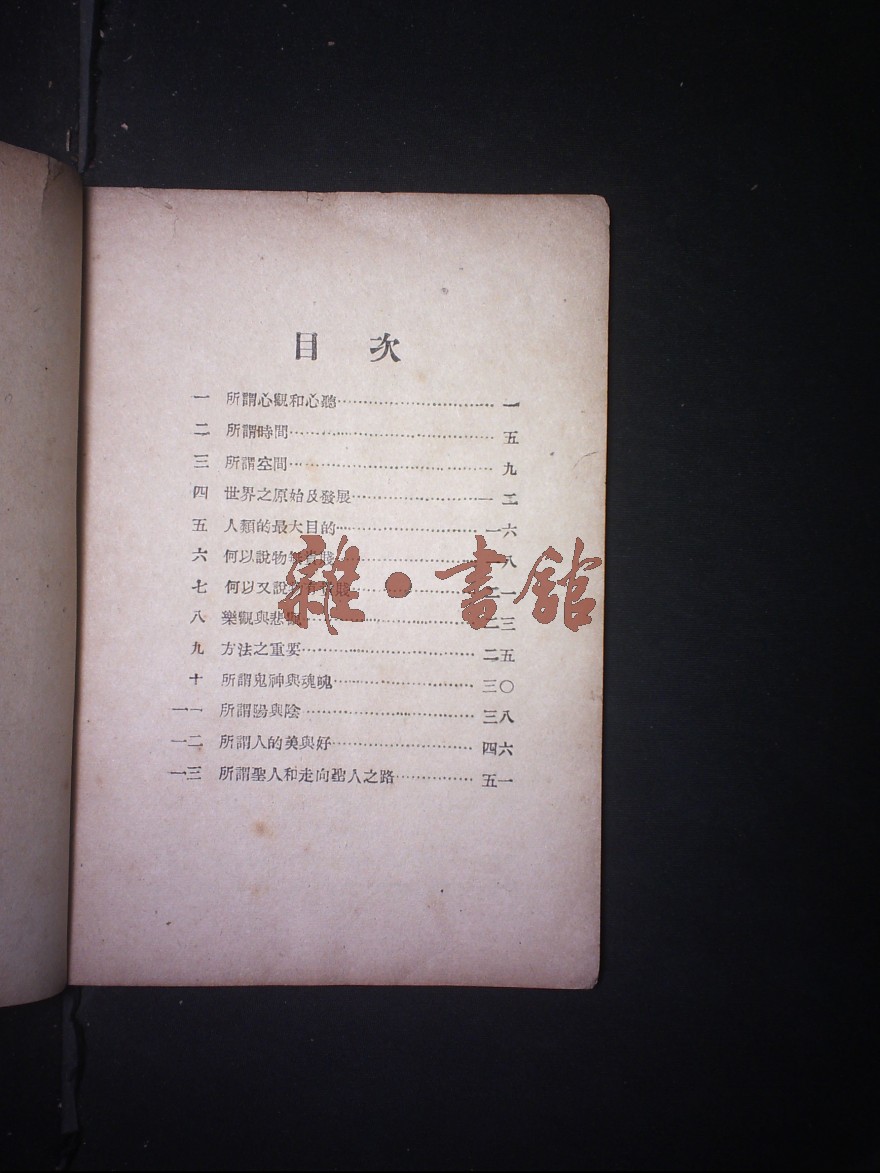 目 次
一 所謂心觀和心聽 一
二 所謂時間 五
三 所謂空間 九
四 世界之原始及發展 一三
五 人類的最大目的 一六
六 何以說物無貴賤 八
七 何以又說物有貴賤 二一
八 樂觀與悲觀 二三
九 方法之重要 二五
十 所謂鬼神與魂魄 三〇
一一 所謂陽與陰 三八
一二 所謂人的美與好 四六
一三 所謂聖人和走向聖人之路 五一
雜·書館